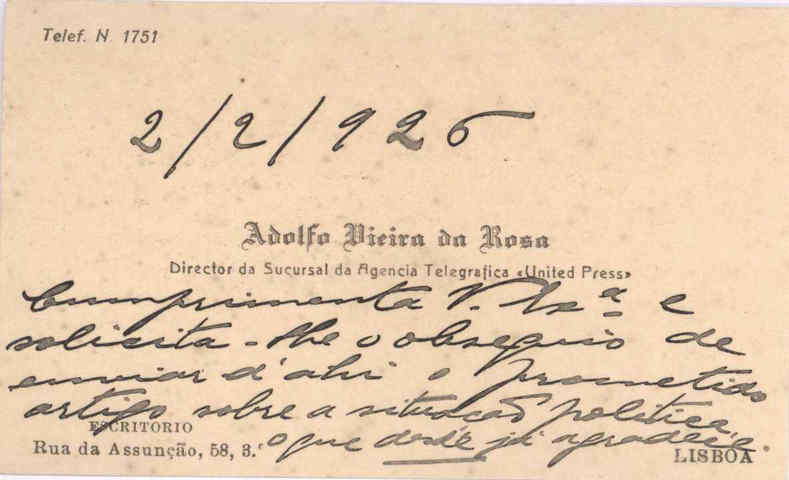 Telef. N 1751
2/2/926
Adolfo Vieira da Rosa
Director da Sucursal da Agencia Telegrafica «United Press»
Cumprimenta V. Exª e
solicita-lhe o obsequio de
enviar d'ahi o prometido
artigo sobre a situação politica,
o que desde já agradece.
ESCRITORIO
Rua da Assunção, 58, 3.º
LISBOA